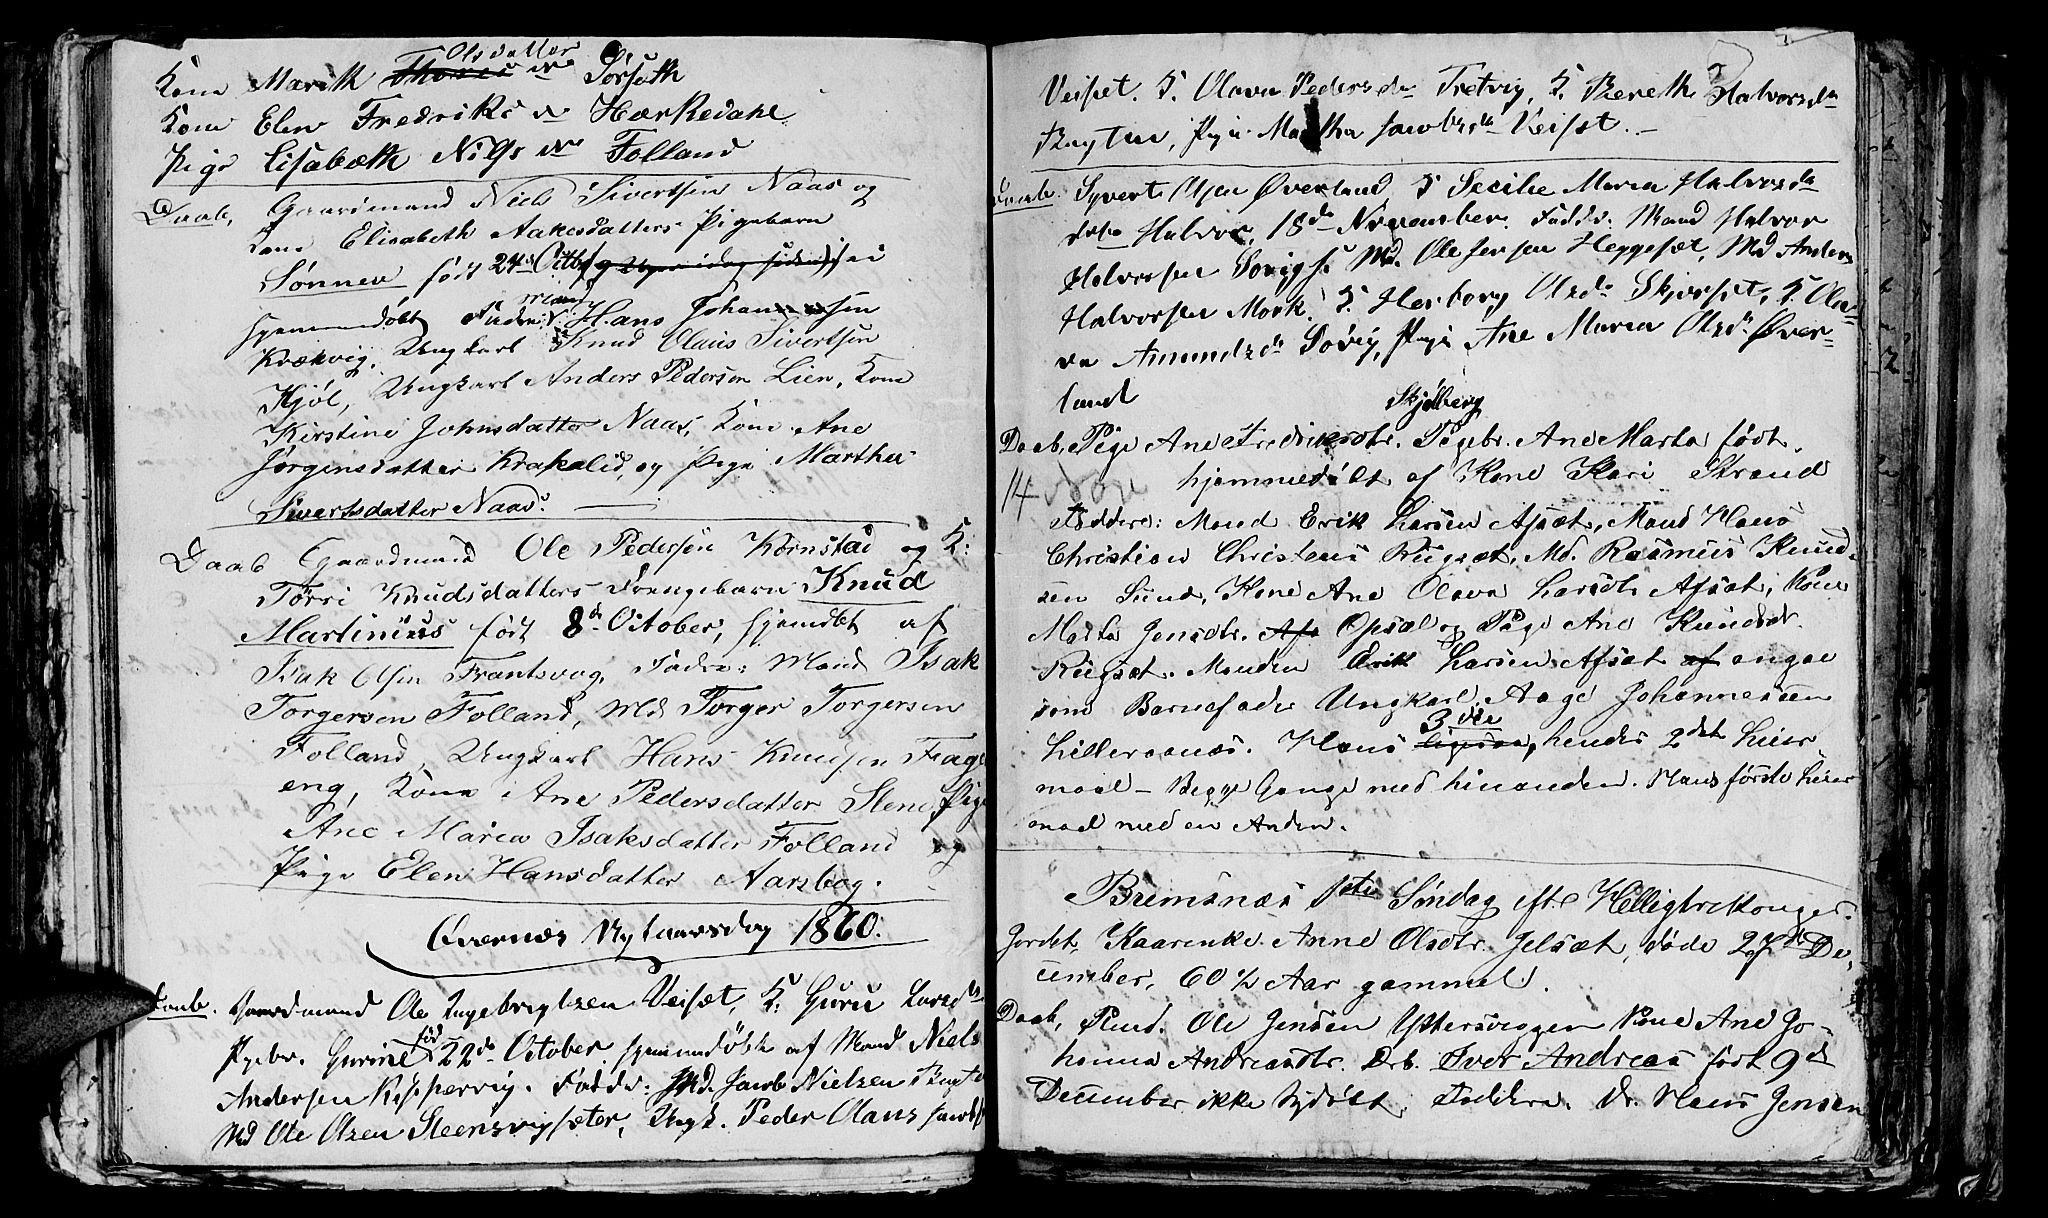 Olsdatter
Kone Marith Sørseth
Kone Elen Fredriks dr Hærkedahl
Pige Lisabeth Nils dr Folland
Daab, Gaardmand Niels Sivertsen Naas og
Kone Elisabeth Aakesdatters Pigebarn
Sønnev født 24d Octbr
hjemmedøbt Faddr: Mand Hans Johannesen
Krækvig, Ungkarl Knud Olaus Sivertsen
Kjøl, Ungkarl Anders Pedersen Lien, Kone
Kirstine Johnsdatter Naas, Kone Ane
Jørgensdatter Krakalid, og Pige Marthe
Sivertsdatter Naas.
Daab Gaardmand Ole Pedersen Kornstad og K:
Torri Knudsdatters Drengebarn Knud
Martinius født 8de October, hjemdbt af
Isak Olsen Frantsvog, Faddr: Mand Isak
Torgersen Folland, Md Torger Torgersen
Folland, Ungkarl Hans Knudsen Fage
eng, Kone Ane Pedersdatter Stene, Pige
Ane Maria Isaksdatter Folland og
Pige Elen Hansdatter Aarsbog.
Øvernæs Nytaarsdag 1860.
Daab. Gaardmand Ole Ingebrigtsen Veiset, K. Guru Larsdtr
Pigebr. Gurine fød 22de October hjemmedøbt af Mand Niels
Andersen Kipperviig. Faddr: Md. Jacob Nielsen
Md Ole Olsen Steensvigsæter, Ungk. Peder Olaus Jacobs
Veiset. K. Olava Pedersdr Tretvig, K. Bereth Halvorsdr
Pige Martha Jacobsdr Veiset.
Daab. Syvert Olsen Øverland, K Secilie Maria Halvorsdr
Halvor, 18de November. Faddr. Mand Halvor
Halvorsen Md. Ole Jensen Heggeset, Md Anders
Halvorsen Mork, K. Herborg Olsdr Skjorset, K. Ola
va Amundsdr Sovig, Pige Ane Maria Olsdr Øver-
land
Skjølberg
Daab, Pige Ane Fredriksdtr. Pigebr. Ane Marta født
14 hjemmedøbt af Kone Kari Strand
Faddere: Mand Erik Larsen Afsæt, Mand Hans
Christian Christens Rugsæt, Md. Rasmus Knud-
sen Sund, Kone Ane Olava Larsdtr Afsæt, Kone
Marta Jensdtr. Opsal og Pige Ane Knudsdr.
Rugsæt. Manden Erik Larsen Afsæt af angav
som Barnefader Ungkarl Aage Johannessen
Lillevaanæs. Hans 3die, hendes 2det Leier-
maal - Begge Gange med hinanden. Hans første Leier
maal med en Anden.
Bremsnæs 1ste Søndag eft. Helligtrekonger.
Jordet, Kaarenke Anne Olsdtr. Jelsæt, døde 27de De-
cember, 60 1/2 Aar gammel.
Daab, Ole Jensen Yttersveggen Kone Ane Jo-
hanna Andreasdtr. Drb. Iver Andreas født 9d
December ikke hjdøbt. Faddere. Hans Jensen